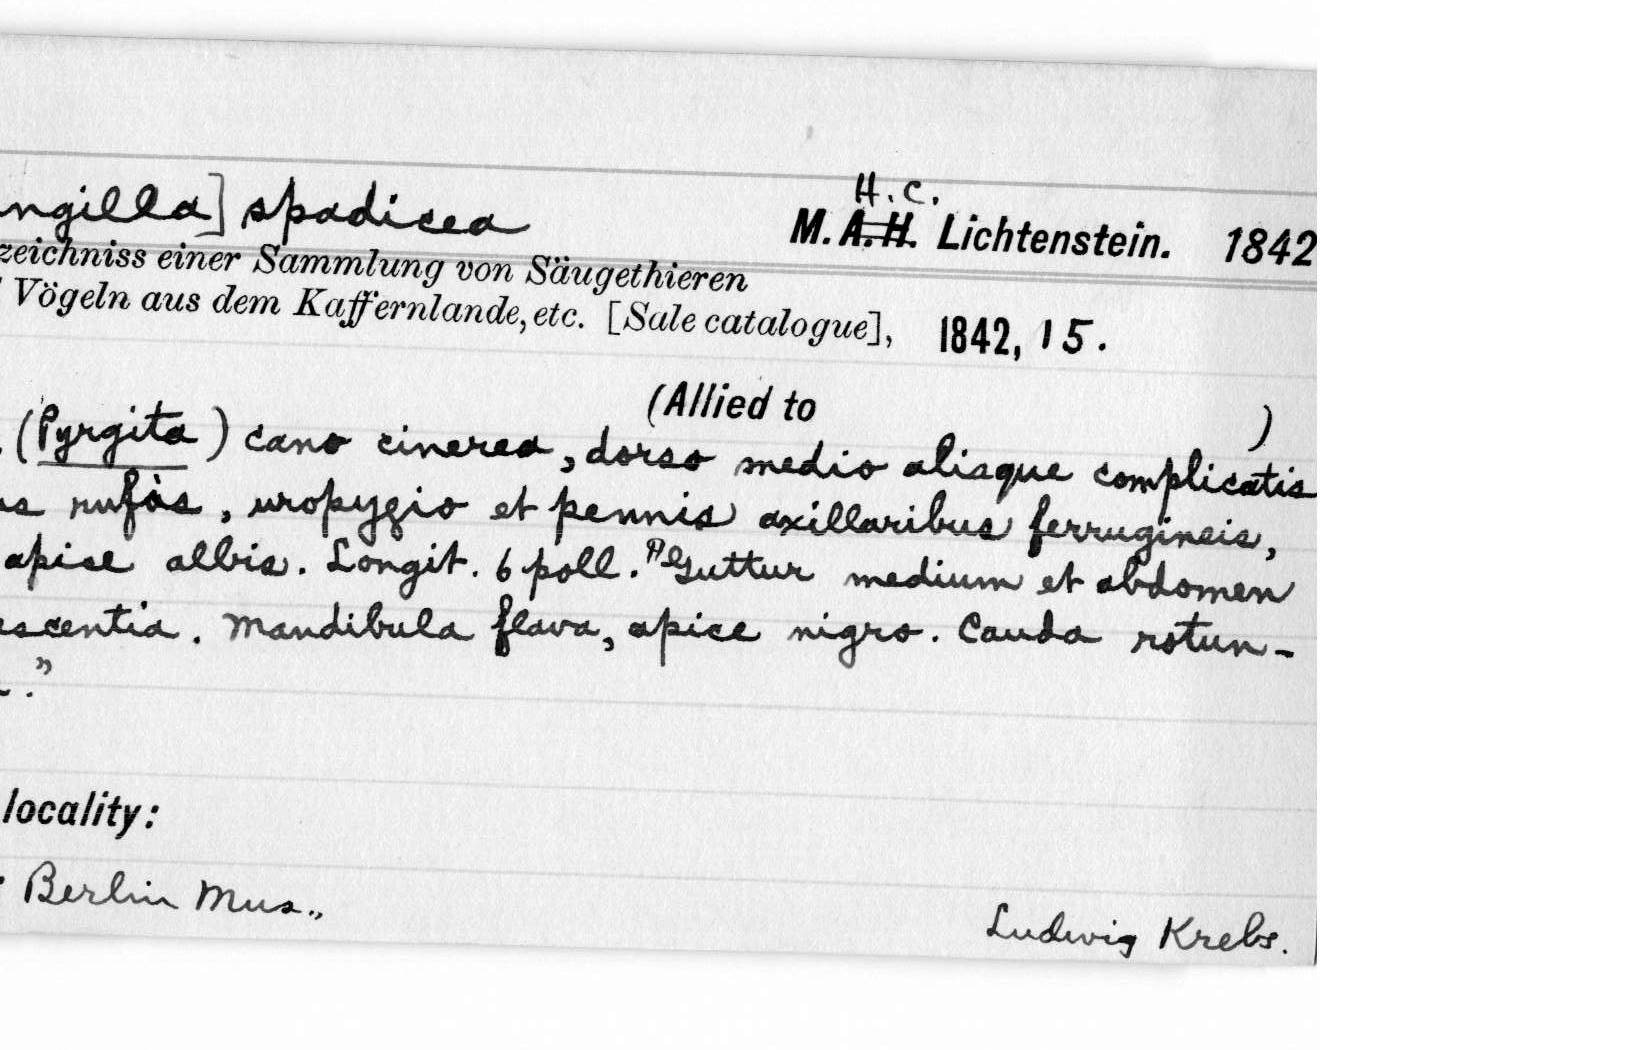 ngilla] spadicea
H. C.
M. A. H. Lichtenstein. 1842
zeichniss einer Sammlung von Säugethieren
Vögeln aus dem Kaffernlande, etc. [Sale catalogue], 1842, 15.
(Allied to )
(Pyrgita) cano cinerea, dorso medio alisque complicatis
us rufis, uropygio et pennis axillaribus ferrugineis,
apice albis. Longit. 6 poll. Guttur medium et abdomen
escentia. Mandibula flava, apice nigro. Cauda rotun-
."
locality:
Berlin Mus.,
Ludwig Krebs.